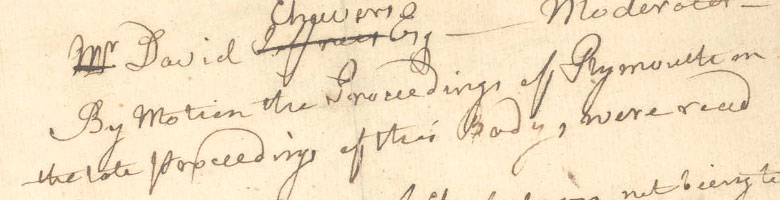 Cheever
Mr David Jeffries Esq — Moderator —
By Motion the Proceedings of Plymouth on
the late proceedings of this Body, were read
not being